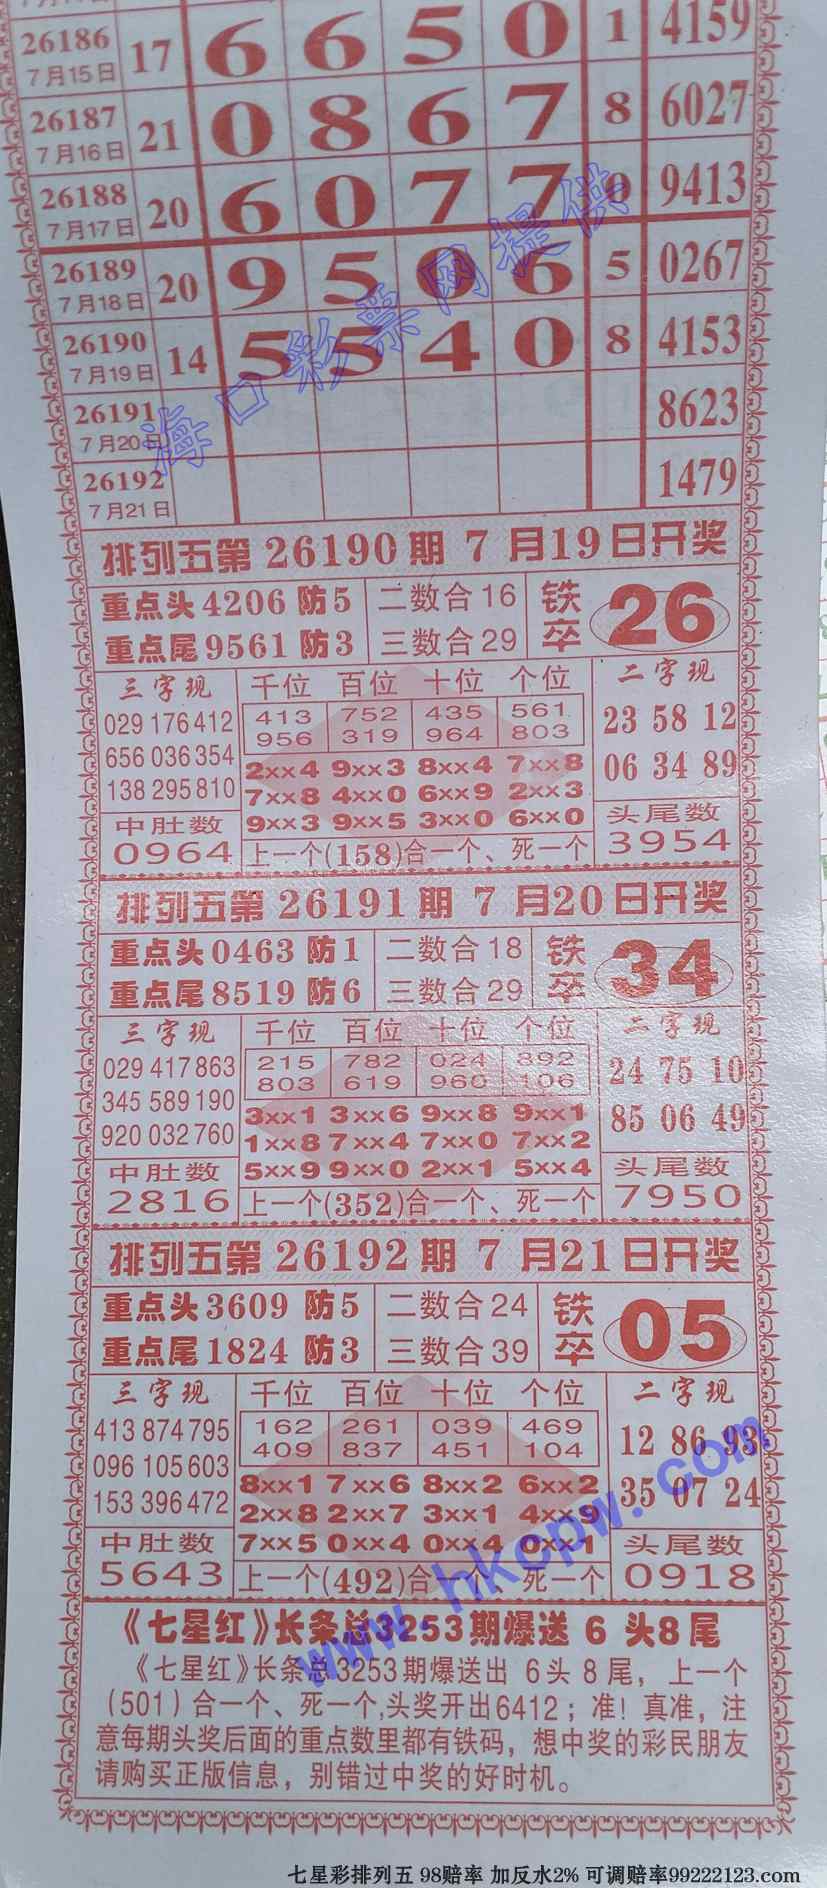 26186 17 6 6 5 0 1 4159
7月15日
26187 21 0 8 6 7 8 6027
7月16日
26188 20 6 0 7 7 0 9413
7月17日
26189 20 9 5 0 6 5 0267
7月18日
26190 14 5 5 4 0 8 4153
7月19日
26191 8623
7月20日
26192 1479
7月21日
海口彩票网提供
排列五第 26190 期 7 月19日开奖
重点头4206 防5 二数合16 铁卒 26
重点尾9561 防3 三数合29
三字现 千位 百位 十位 个位 二字现
029 176 412 413 752 435 561 23 58 12
656 036 354 956 319 964 803 06 34 89
138 295 810 2××4 9××3 8××4 7××8
7××8 4××0 6××9 2××3
中肚数 9××3 9××5 3××0 6××0 头尾数
0964 上一个(158)合一个、死一个 3954
排列五第 26191 期 7 月20日开奖
重点头0463 防1 二数合18 铁卒 34
重点尾8519 防6 三数合29
三字现 千位 百位 十位 个位 二字现
029 417 863 215 782 024 392 24 75 10
345 589 190 803 619 960 106 85 06 49
920 032 760 3××1 3××6 9××8 9××1
1××8 7××4 7××0 7××2
中肚数 5××9 9××0 2××1 5××4 头尾数
2816 上一个(352)合一个、死一个 7950
排列五第 26192 期 7 月21日开奖
重点头3609 防5 二数合24 铁卒 05
重点尾1824 防3 三数合39
三字现 千位 百位 十位 个位 二字现
413 874 795 162 261 039 469 12 86 93
096 105 603 409 837 451 104 35 07 24
153 396 472 8××1 7××6 8××2 6××2
2××8 2××7 3××1 4××9
中肚数 7××5 0××4 0××4 0××1 头尾数
5643 上一个(492)合一个、死一个 0918
www.hkcpw.com
《七星红》长条总3253期爆送 6 头8尾
《七星红》长条总3253期爆送出 6头8尾，上一个
(501）合一个、死一个,头奖开出6412；准！真准，注
意每期头奖后面的重点数里都有铁码，想中奖的彩民朋友
请购买正版信息，别错过中奖的好时机。
七星彩排列五 98赔率 加反水2% 可调赔率99222123.com